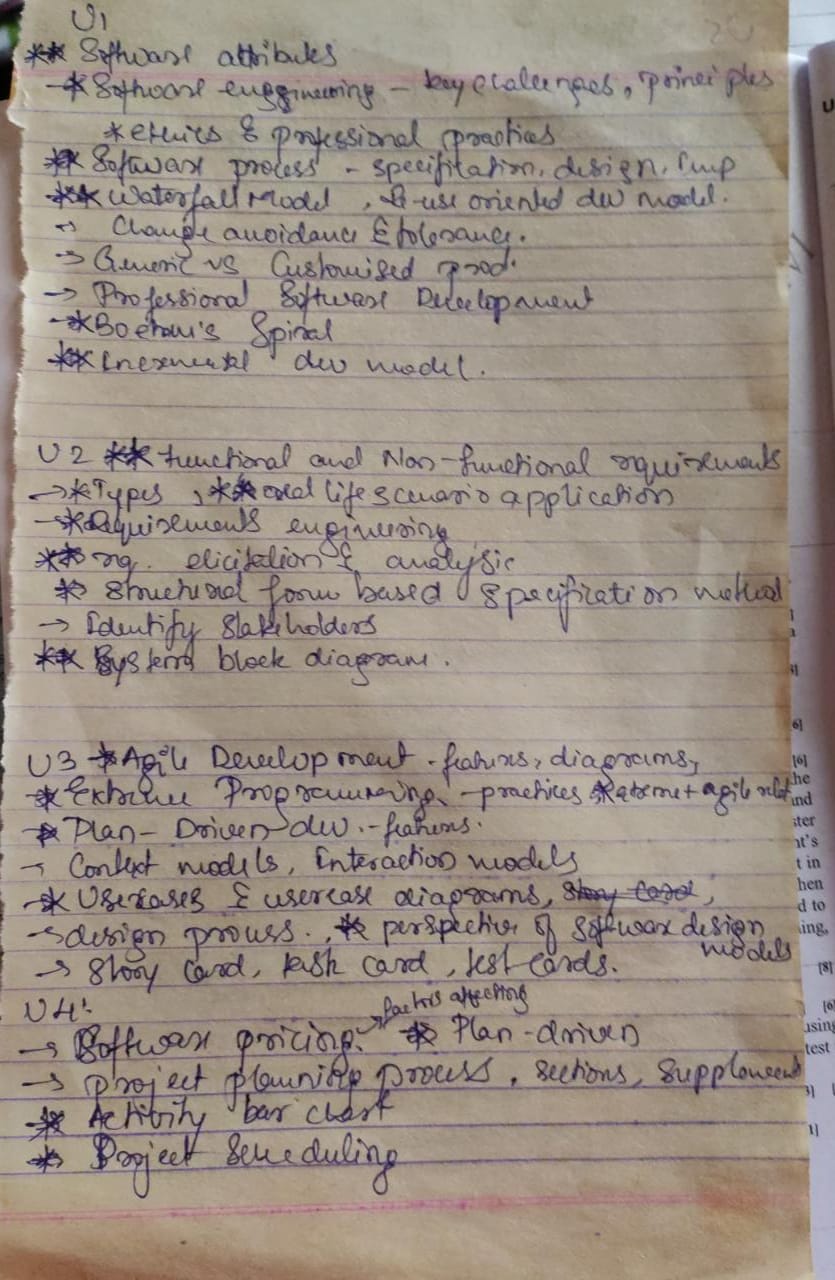 U1
** Software attributes
→* Software enggineering - key challenges, principles
* ethics & professional practices
** Software process - specification, design, imp
** Waterfall Model, Re-use oriented dev model.
→ Change avoidance & tolerance.
→ Generic vs Customised prod.
→ Professional Software Development
→* Boehm's Spiral
** Incremental dev model.
U2 ** Functional and Non-functional requirements
→* Types, ** real life scenario application
→* Requirements engineering
** rq. elicitation & analysis
* Structured form based specification method
→ Identify Stakeholders
** System block diagram.
U3 * Agile Development - features, diagrams,
* Extreme Programming - practices * agile
* Plan-Driven dev. - features.
→ Context models, Interaction models
→* Usecases & usecase diagrams, Story Card,
→ design process., * perspective of software design models
→ Story card, task card, test cards.
U4:
→ Software pricing. → factors affecting * Plan-driven
→ project planning process, sections, supplements
* Activity bar chart
* Project Scheduling
he
and
ster
nt's
t in
hen
d to
ing,
[8]
using
test